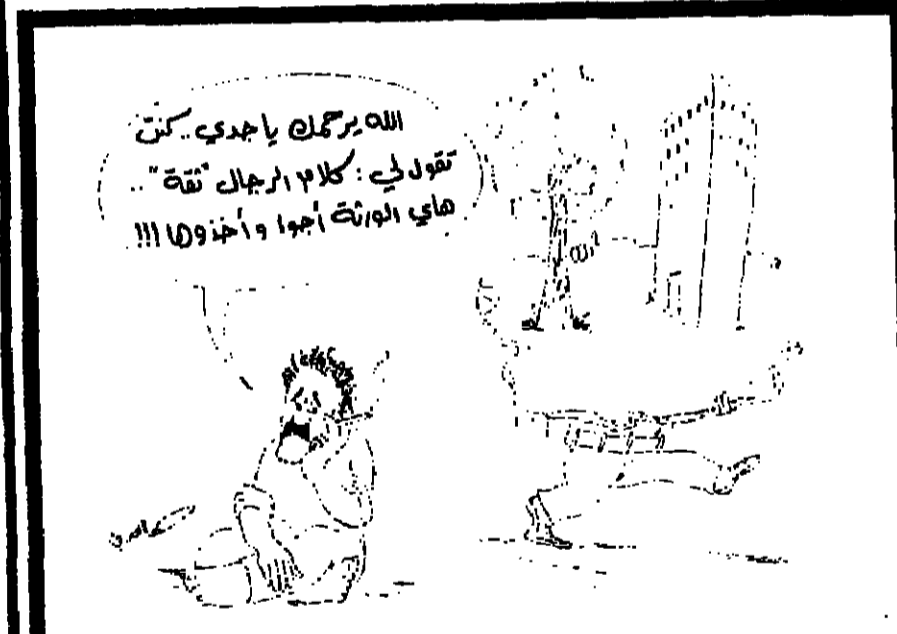 الله يرحمك يا جدي.. كنت
تقول لي: كلام الرجال "ثقة"..
هاي الورثة أجوا وأخذوها !!!